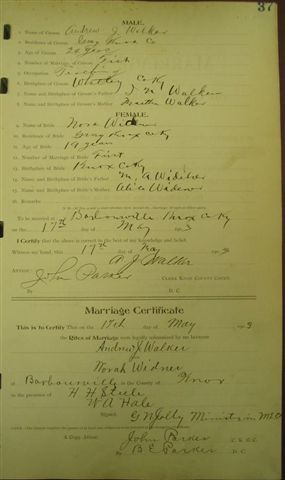 37
MALE.
1. Name of Groom Andrew J Walker
2. Residence of Groom Gray Knox Co
3. Age of Groom 24 years
4. Number of Marriage of Groom First
5. Occupation Teaching
6. Birthplace of Groom Whitley Co Ky
7. Name and Birthplace of Groom's Father J. M. Walker
8. Name and Birthplace of Groom's Mother Martha Walker
FEMALE.
9. Name of Bride Nora Widener
10. Residence of Bride Gray Knox Co Ky
11. Age of Bride 19 years
12. Number of Marriage of Bride First
13. Birthplace of Bride Knox Co Ky
14. Name and Birthplace of Bride's Father M. A Widener
15. Name and Birthplace of Bride's Mother Alice Widener
16. Remarks
To be married at Barbourville Knox Co Ky
on the 17th day of May 3
I Certify that the above is correct to the best of my knowledge and belief.
Witness my hand, this 17th day of May 3
A. J. Walker
Attest:
John Parker Clerk Knox County Court.
By D. C.
Marriage Certificate
This is to Certify That on the 17th day of May 3
the Rites of Marriage were legally solemnized by me between
Andrew J Walker
and
Norah Widner
at Barbourville in the County of Knox
in the presence of H H Steele
W A Hale
Signed G W Jolly Minister in M.E.C
A Copy. Attest: John Parker C K C C
By B E Parker D.C